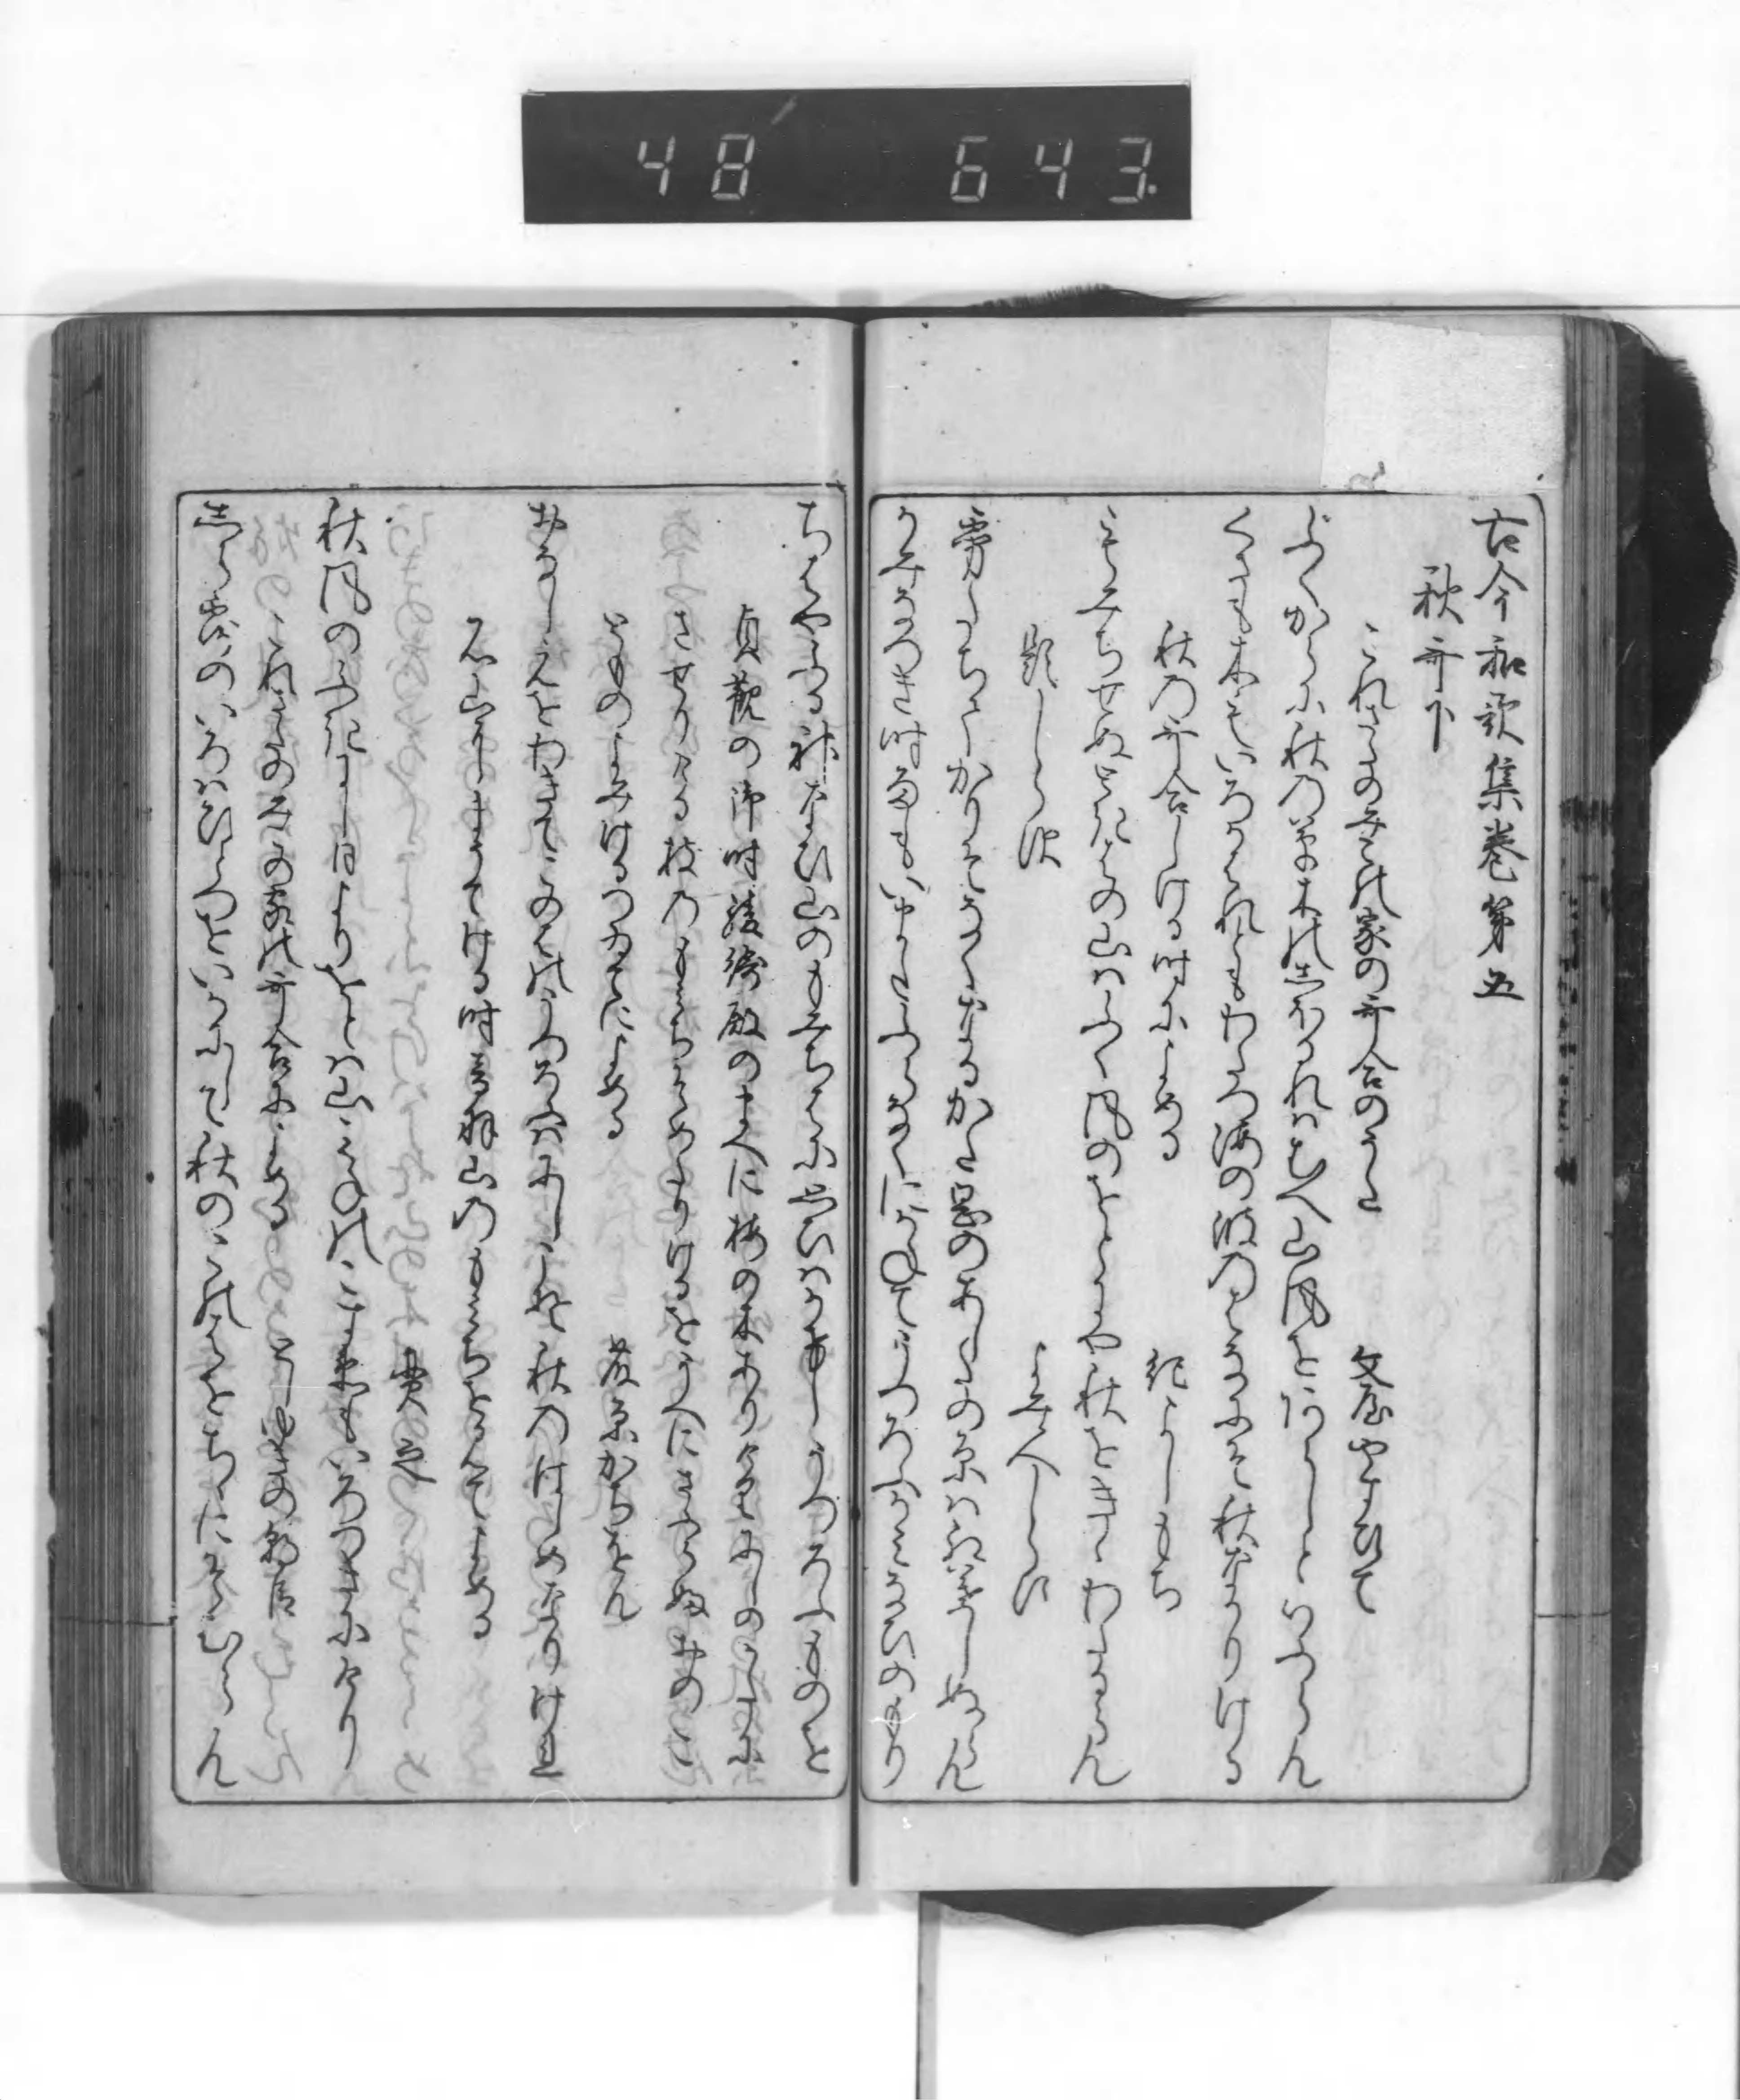 48 643
古今和歌集巻第五
秋哥下
これさたのみこの家の哥合のうた
文屋やすひて
ふくからに秋の草木のしほるれはむへ山風をあらしといふらん
くさも木もいろかはれともわたつ海の波の花にそ秋なかりける
秋の哥合しける時によめる
紀よしもち
もみちせぬときはの山はふく風のをとにや秋をきゝわたるらん
題しらす
よみ人しらす
霧たちてかりそなくなるかた岡のあしたの原はもみちしぬらん
かみな月時雨もいまたふらなくにかねてうつろふかみなひのもり
ちはやふる神なひ山のもみちはに思ひはかけしうつろふものを
貞観の御時綾綺殿のまへに梅の木ありけりにしのかたに
させりける枝のもみちはしめたりけるをうへにさふらふをのこ
とものよみけるつゐてによめる
藤原かちをん
おなしえをわきてこのはのうつろふはにしこそ秋のはしめなりけれ
石山にまうてける時音羽山のもみちをみてよめる
貫之
秋風のふきにし日よりをとは山みねのこすゑもいろつきにけり
これさたのみこの家の哥合によめる
としゆきの朝臣
しら露のいろはひとつをいかにして秋のこのはをちゝにそむらん